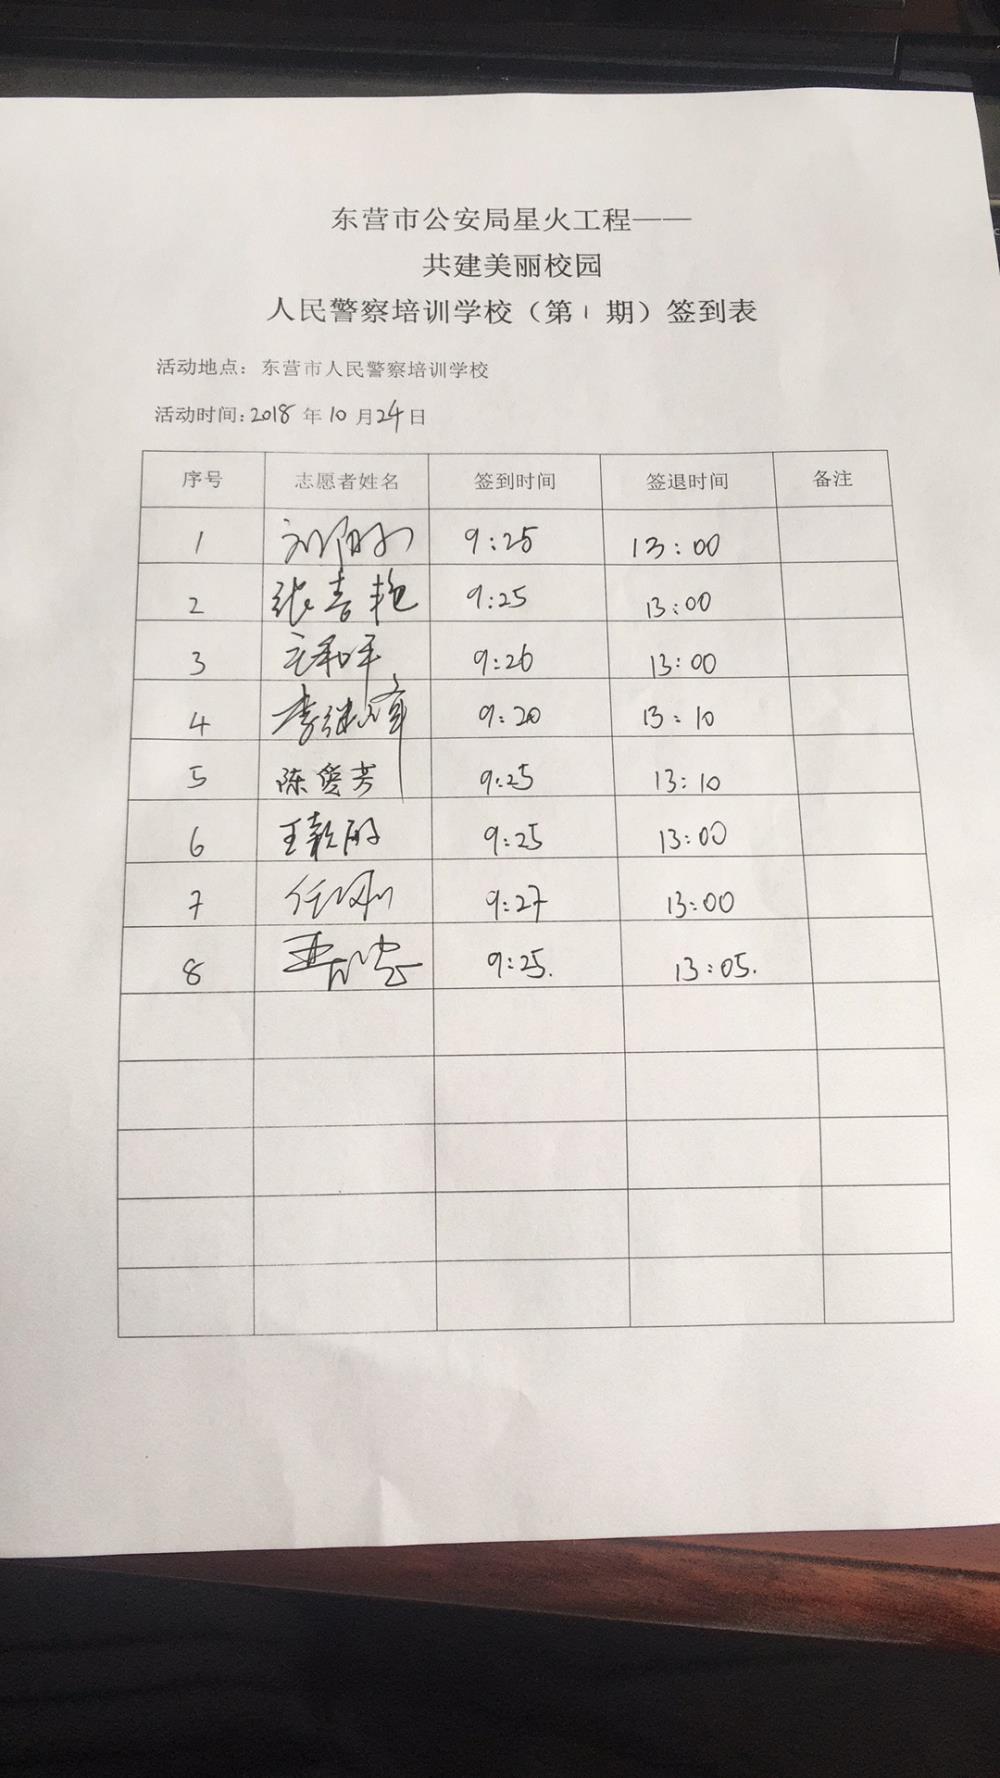 东营市公安局星火工程——
共建美丽校园
人民警察培训学校（第1期）签到表
活动地点：东营市人民警察培训学校
活动时间：2018年10月24日
序号 志愿者姓名 签到时间 签退时间 备注
1 9:25 13:00
2 张喜艳 9:25 13:00
3 9:26 13:00
4 李继 9:20 13:10
5 陈 芳 9:25 13:10
6 王 9:25 13:00
7 任刚 9:27 13:00
8 9:25. 13:05.